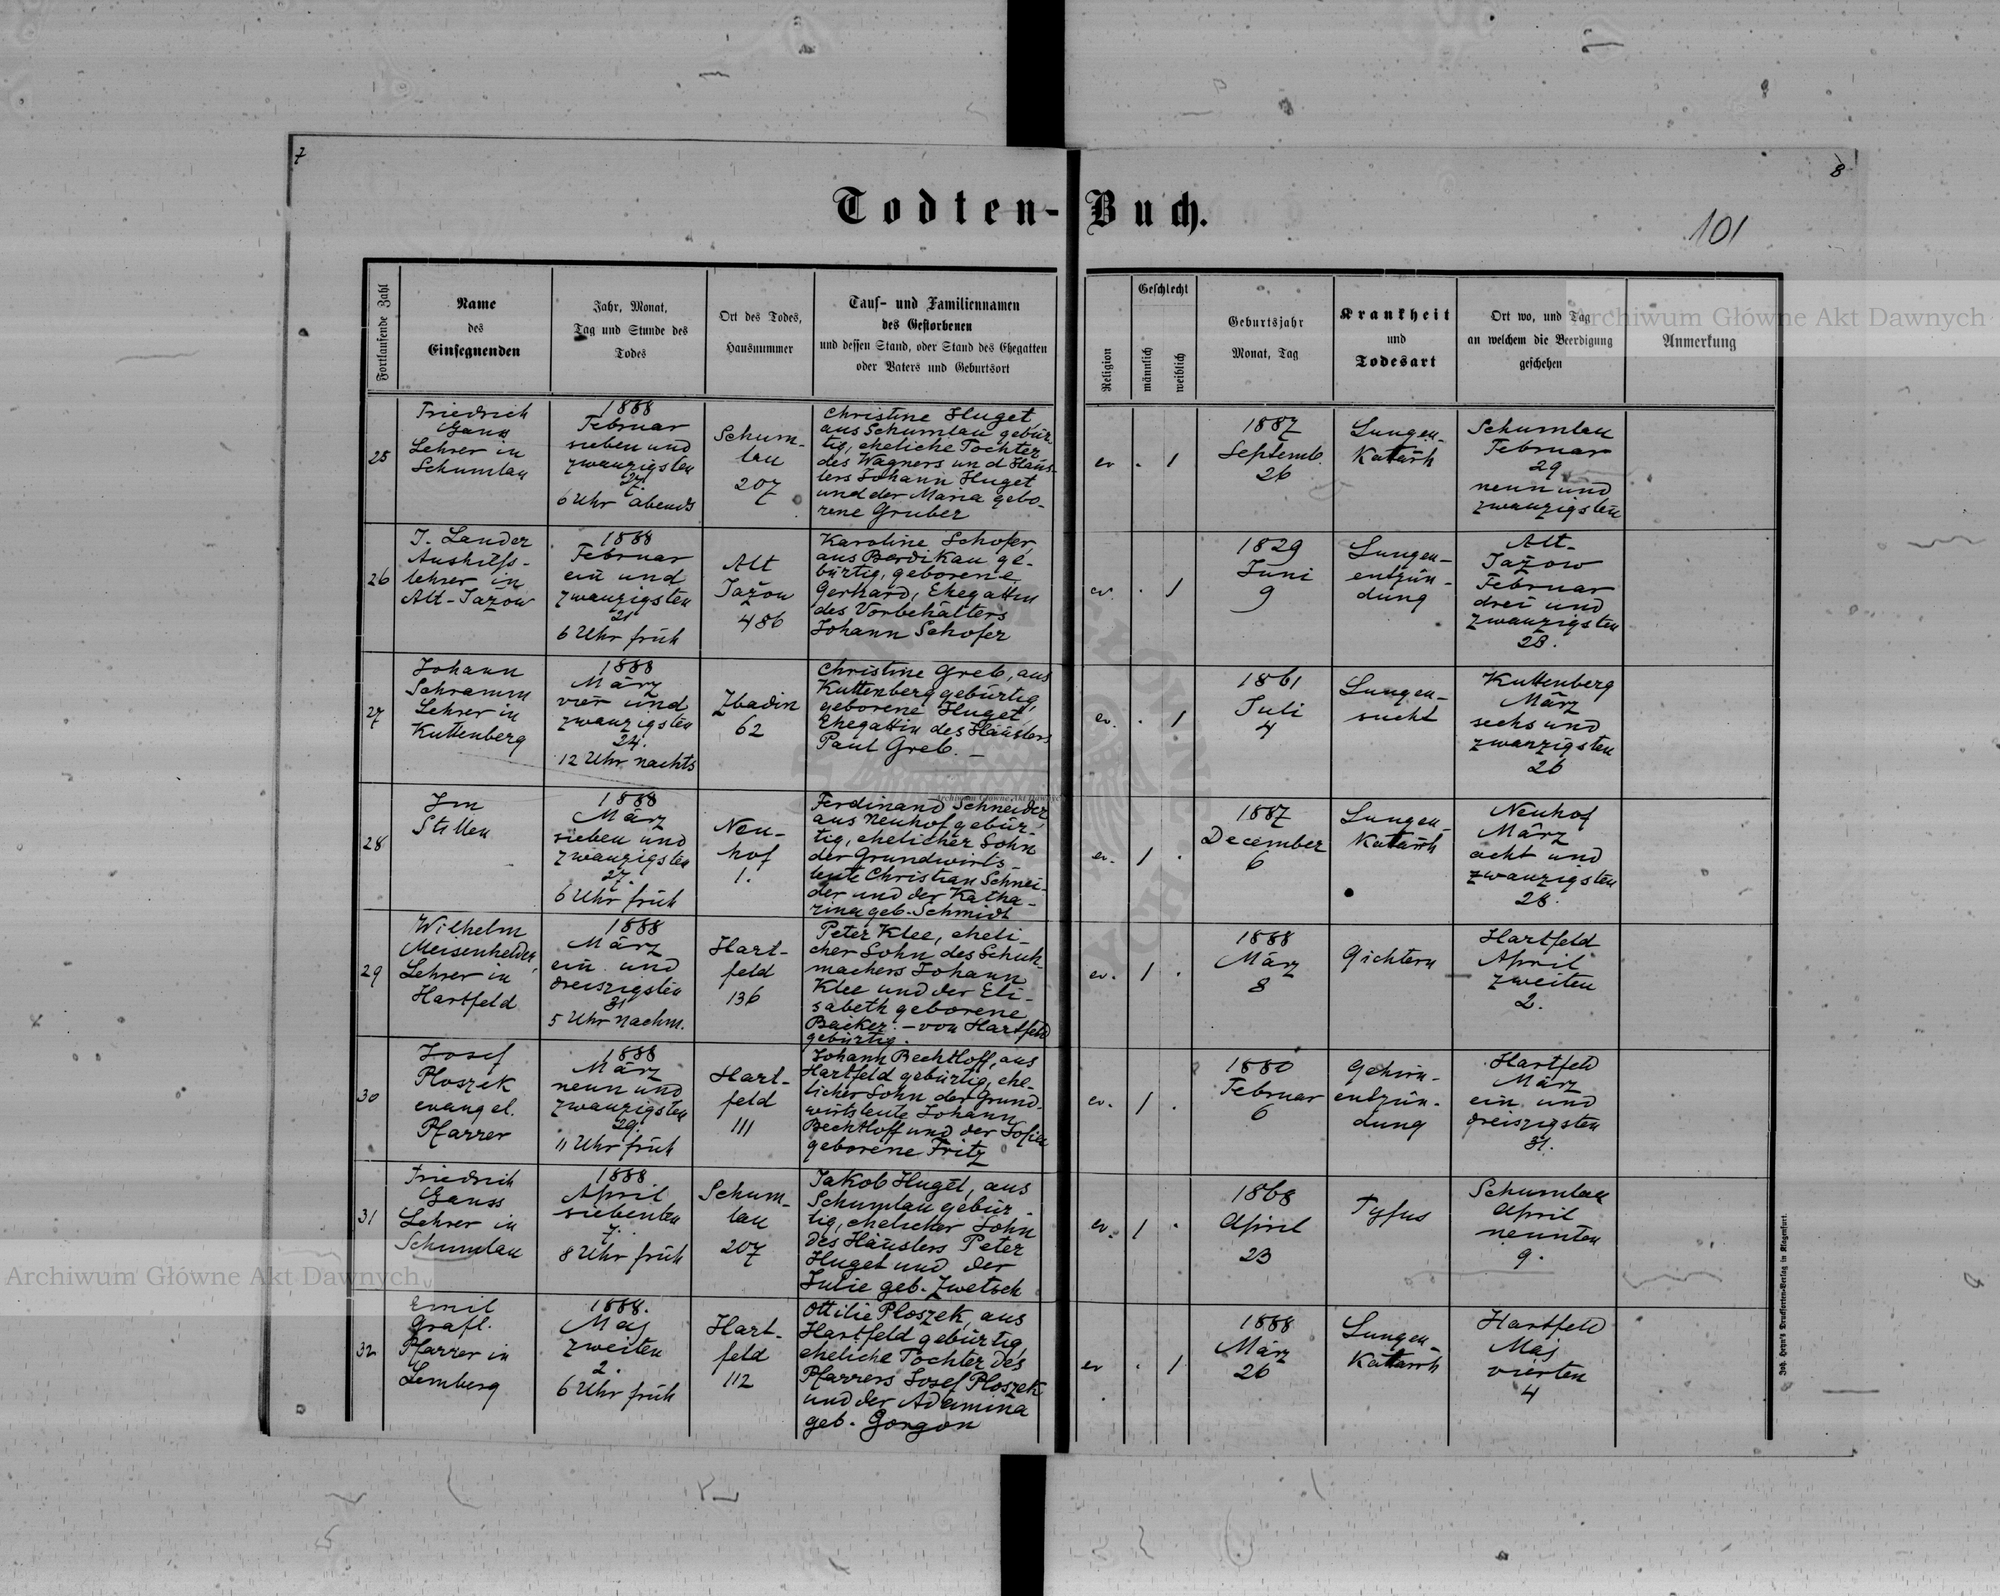 7
8
Todten-Buch.
101
Fortlaufende Zahl
Name
des
Einsegnenden
Jahr, Monat,
Tag und Stunde des
Todes
Ort des Todes,
Hausnummer
Tauf- und Familiennamen
des Gestorbenen
und dessen Stand, oder Stand des Ehegatten
oder Vaters und Geburtsort
Religion
Geschlecht
männlich
weiblich
Geburtsjahr
Monat, Tag
Krankheit
und
Todesart
Ort wo, und Tag
an welchem die Beerdigung
geschehen
Anmerkung
Archiwum Główne Akt Dawnych
25
Friedrich
Gauss
Lehrer in
Schumlau
1888
Februar
sieben und
zwanzigsten
27.
6 Uhr abends
Schum-
lau
207
Christine Huget
aus Schumlau gebür-
tig, eheliche Tochter
des Wagners und Häus-
lers Johann Huget
und der Maria gebo-
rene Gruber
ev
.
1
1887
Septemb.
26
Lungen-
Katarrh
Schumlau
Februar
29
neun und
zwanzigsten
26
J. Lander
Aushilfs-
lehrer in
Alt-Jažow
1888
Februar
ein und
zwanzigsten
21
6 Uhr früh
Alt
Jažow
486
Karoline Schofer,
aus Berdikau ge-
bürtig, geborene
Gerhard, Ehegattin
des Vorbehälters
Johann Schofer
ev.
.
1
1829
Juni
9
Lungen-
entzün-
dung
Alt-
Jažow
Februar
drei und
zwanzigsten
23.
27
Johann
Schramm
Lehrer in
Kuttenberg
1888
März
vier und
zwanzigsten
24.
12 Uhr nachts
Zbadin
62
Christine Greb, aus
Kuttenberg gebürtig,
geborene Huget,
Ehegattin des Häuslers
Paul Greb. —
ev.
.
1
1861
Juli
4
Lungen-
sucht
Kuttenberg
März
sechs und
zwanzigsten
26
28
Im
Stillen
1888
März
sieben und
zwanzigsten
27.
6 Uhr früh
Neu-
hof
1.
Ferdinand Schneider
aus Neuhof gebür-
tig, ehelicher Sohn
der Grundwirts-
leute Christian Schnei-
der und der Katha-
rina geb. Schmidt
ev.
1
.
1887
December
6
Lungen-
Katarrh
Neuhof
März
acht und
zwanzigsten
28.
29
Wilhelm
Meisenhelder,
Lehrer in
Hartfeld
1888
März
ein und
dreiszigsten
31
5 Uhr nachm.
Hart-
feld
136
Peter Klee, eheli-
cher Sohn des Schuh-
machers Johann
Klee und der Eli-
sabeth geborene
Bäcker. — von Hartfeld
gebürtig.
ev.
1
.
1888
März
8
Gichtern
Hartfeld
April
zweiten
2.
30
Josef
Ploszek
evangel.
Pfarrer
1888
März
neun und
zwanzigsten
29.
11 Uhr früh
Hart-
feld
111
Johann Bechtloff, aus
Hartfeld gebürtig, ehe-
licher Sohn der Grund-
wirtsleute Johann
Bechtloff und der Sofie
geborene Fritz
ev.
1
.
1880
Februar
6
Gehirn-
entzün-
dung
Hartfeld
März
ein und
dreiszigsten
31.
31
Friedrich
Gauss
Lehrer in
Schumlau
1888
April
siebenten
7.
8 Uhr früh
Schum-
lau
207
Jakob Huget, aus
Schumlau gebür-
tig, ehelicher Sohn
des Häuslers Peter
Huget und der
Julie geb. Zwetsch
ev.
1
.
1868
April
23
Tyfus
Schumlau
April
neunten
9.
32
Emil
Grafl.
Pfarrer in
Lemberg
1888.
Maj
zweiten
2.
6 Uhr früh
Hart-
feld
112
Ottilie Ploszek, aus
Hartfeld gebürtig,
eheliche Tochter des
Pfarrers Josef Ploszek
und der Adamina
geb. Gorgon
ev
.
1
1888
März
26
Lungen-
Katarrh
Hartfeld
Maj
vierten
4
Archiwum Główne Akt Dawnych
Joh. Heyn's Drucksorten-Verlag in Klagenfurt.